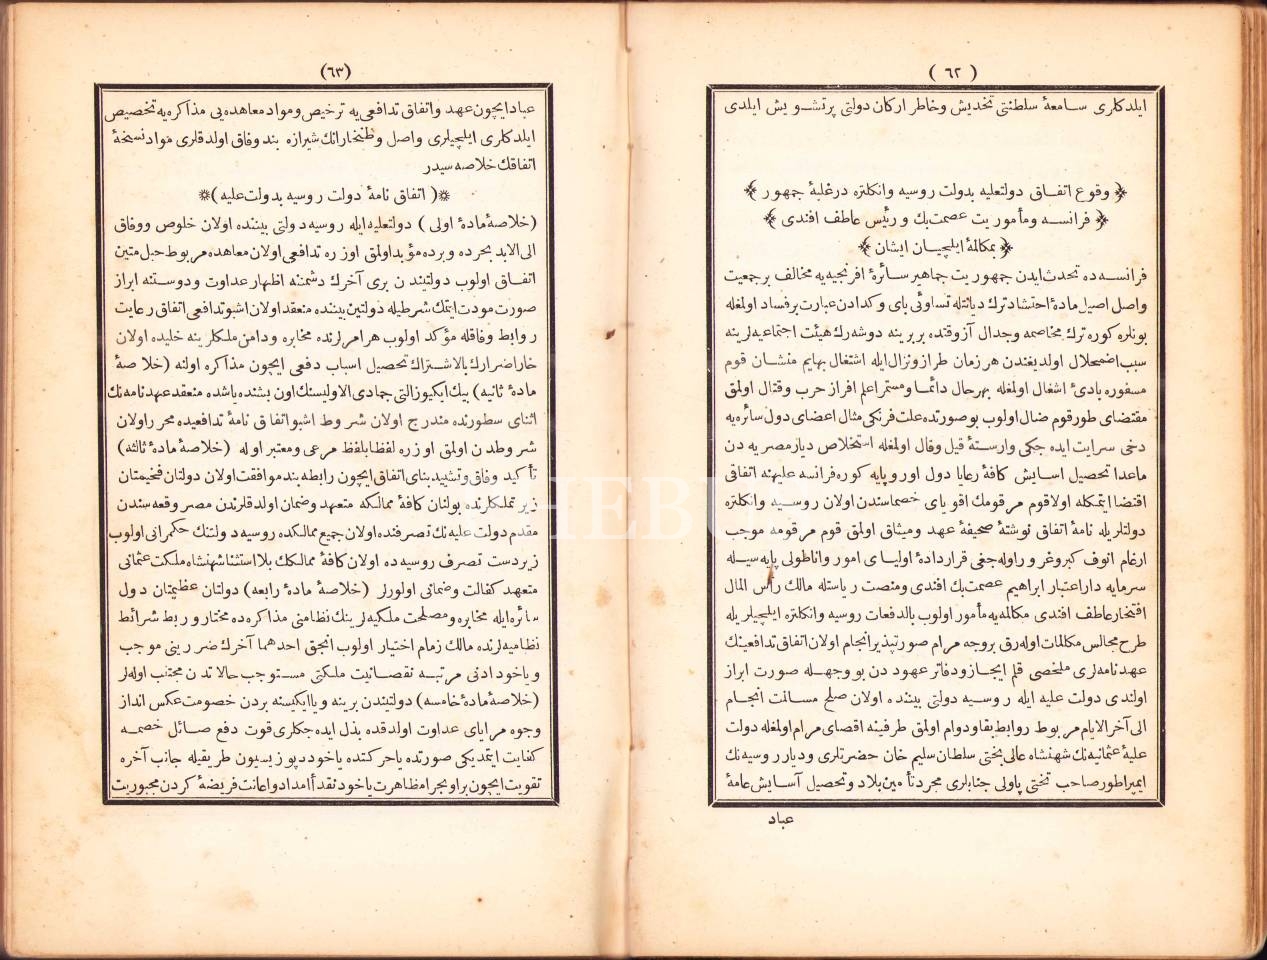 ( ٦٢ )
ايلدكلرى سامعهٔ سلطنتى تخديش وخاطر اركان دولتى پرتشويش ايلدى
وقوع اتفاق دولتعليه بدولت روسيه وانكلتره درغلبهٔ جمهور
فرانسه ومأموريت عصمت بك ورئيس عاطف افندى
بمكالمهٔ ايلچيان ايشان
فرانسه ده تحدث ايدن جمهوريت جماهير سائرهٔ افرنجيه يه مخالف برجمعيت
واصل اصيل مادهٔ احتشاد ترك ديانتله تساوئ باى وكدادن عبارت برفساد اولمغله
بونلره كوره ترك مخاصمه وجدال آزوقتده بربرينه دوشه رك هيئت اجتماعيه لرينه
سبب اضمحلال اولديغندن هر زمان طرازونزال ايله اشتغال بهايم منشان قوم
مسفوره بادئ اشغال اولمغله بهرحال دائما ومستمرا علم افراز حرب وقتال اولمق
مقتضاى طورقوم ضال اولوب بوصورتده علت فرنكى مثال اعضاى دول سائره يه
دخى سرايت ايده جكى وارستهٔ قيل وقال اولمغله استخلاص ديار مصريه دن
ماعدا تحصيل اسايش كافهٔ رعايا دول اوروپايه كوره فرانسه عليهنه اتفاقى
اقتضا ايتمكله اولاقوم مرقومك اقوياى خصماسندن اولان روسيه وانكلتره
دولتلريله نامهٔ اتفاق نوشتهٔ صحيفهٔ عهد وميثاق اولمق قوم مرقومه موجب
ارغام انوف كبروغرو راوله جغى قراردادهٔ اولياى امور واناطولى پايه سيله
سرمايه دار اعتبار ابراهيم عصمت بك افندى ومنصت رياستله مالك رأس المال
افتخار عاطف افندى مكالمه يه مأمور اولوب بالدفعات روسيه وانكلتره ايلچيلريله
طرح مجالس مكالمات اوله رق بروجه مرام صورتپذير انجام اولان اتفاق تدافعينك
عهدنامه لرى ملخصى قلم ايجازودفاتر عهود دن بو وجهله صورت ابراز
اولندى دولت عليه ايله روسيه دولتى بيننده اولان صلح مسانت انجام
الى آخر الايام مربوط روابط بقاودوام اولمق طرفينه اقصاى مرام اولمغله دولت
عليهٔ عثمانيه نك شهنشاه عالى بختى سلطان سليم خان حضرتلرى وديار روسيه نك
ايمپراطور صاحب تختى پاولى جنابلرى مجرد تأمين بلاد وتحصيل آسايش عامهٔ
عباد
(٦٣)
عبادايچون عهد واتفاق تدافعى يه ترخيص ومواد معاهده بى مذاكره يه تخصيص
ايلدكلرى ايلچيلرى واصل وطنخارانك شيرازه بند وفاق اولدقلرى مواد نسخهٔ
اتفاقك خلاصه سيدر
( اتفاق نامهٔ دولت روسيه بدولت عليه )
(خلاصهٔ مادهٔ اولى ) دولتعليه ايله روسيه دولتى بيننده اولان خلوص ووفاق
الى الابد بحرده وبرده مؤبد اولمق اوزره تدافعى اولان معاهده مربوط حبل متين
اتفاق اولوب دولتيندن برى آخرك دشمننه اظهار عداوت ودوستنه ابراز
صورت مودت ايتمك شرطيله دولتين بيننده منعقد اولان اشبو تدافعى اتفاق رعايت
روابط وفاقله مؤكد اولوب هر امرلرنده مخابره ودامن ملكلرينه خليده اولان
خاراضرارك بالاشتراك تحصيل اسباب دفعى ايچون مذاكره اولنه (خلاصهٔ
مادهٔ ثانيه) بيك ايكيوزالتى جمادى الاوليسنك اون بشنده ياشده منعقد عهدنامه نك
اثناى سطورنده مندرج اولان شروط اشبو اتفاق نامهٔ تدافعيده محرر اولان
شروطدن اولمق اوزره لفظا بلفظ مرعى ومعتبر اوله (خلاصهٔ مادهٔ ثالثه)
تأكيد وفاق وتشييد بناى اتفاق ايچون رابطه بند موافقت اولان دولتان فخيمتان
زير تملكلرنده بولنان كافهٔ ممالكه متعهد وضمان اولدقلرندن مصر وقعه سندن
مقدم دولت عليه نك تصرفنده اولان جميع ممالكده روسيه دولتنك حكمرانى اولوب
زبردست تصرف روسيه ده اولان كافهٔ ممالكك بلا استثنا شهنشاه ملكت عثمانى
متعهد كفالت وضمانى اولورلر (خلاصهٔ مادهٔ رابعه) دولتان عظيمتان دول
سائره ايله مخابره ومصلحت ملكيه لرينك نظامنى مذاكره ده مختار وربط شرائط
نظاميه لرنده مالك زمام اختيار اولوب انجق احدهما آخرك ضررينى موجب
وياخود ادنى مرتبه نقصانيت ملكتى مستوجب حالاتدن مجتنب اوله لر
(خلاصهٔ مادهٔ خامسه) دولتيندن برينه ويا ايكيسنه بردن خصومت عكس انداز
وجوه مراياى عداوت اولدقده بذل ايده جكلرى قوت دفع صائل خصمه
كفايت ايتمديكى صورتده ياحركتده ياخود ديوزيسيون طريقيله جانب آخره
تقويت ايچون برا وبحرا مظاهرت ياخود نقدأ امداد واعانت فريضهٔ كردن مجبوريت